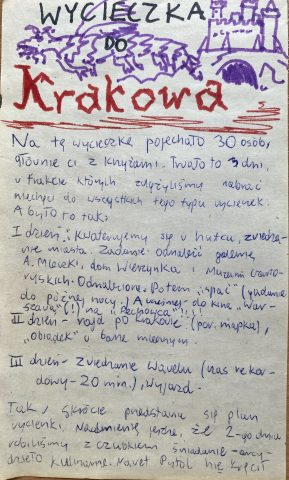 WYCIECZKA
DO
Krakowa
Na tę wycieczkę pojechało 30 osób,
głównie ci z
Trwało to 3 dni,
w trakcie których zdążyliśmy nabrać
niechęci do wszystkich tego typu wycieczek.
A było to tak:
I dzień: kwaterujemy się w hufcu, zwiedza-
nie miasta. Zadanie: odnaleźć galerię
A. dom Wierzynka i Muzeum Czarto-
ryskich. Odnalezione. Potem "spać" (gadanie
do późnej nocy.) A wcześniej - do kina "War-
szawa" (!) na
II dzień - rajd po Krakowie (por. mapka),
"obiadek" w barze mlecznym.
III dzień - Zwiedzanie Wawelu (czas rekor-
dowy - 20 min.), wyjazd.
Tak w skrócie przedstawia się plan
wycieczki. Nadmienię jeszcze, że 2-go dnia
robiliśmy z śniadanie - arcy-
dzieło kulinarne. Nawet nie kręcił